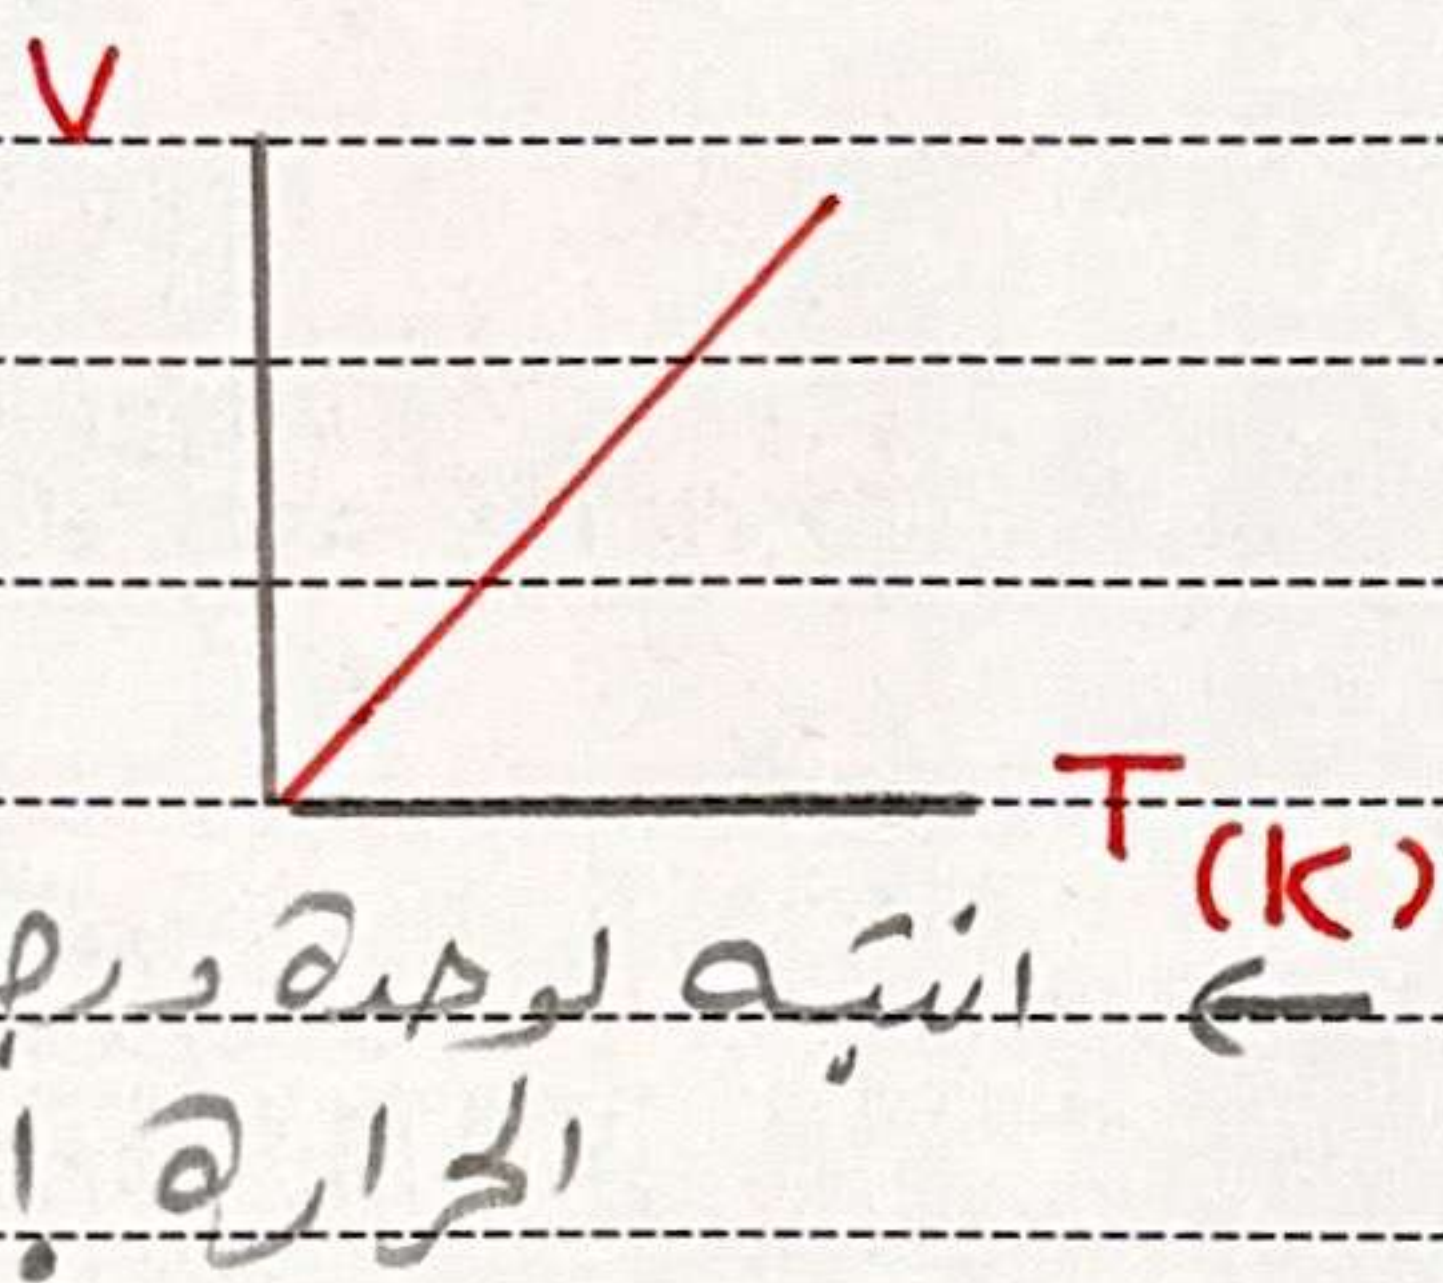 V
T (K)
← انتبه لوحدة درج
الحرارة !